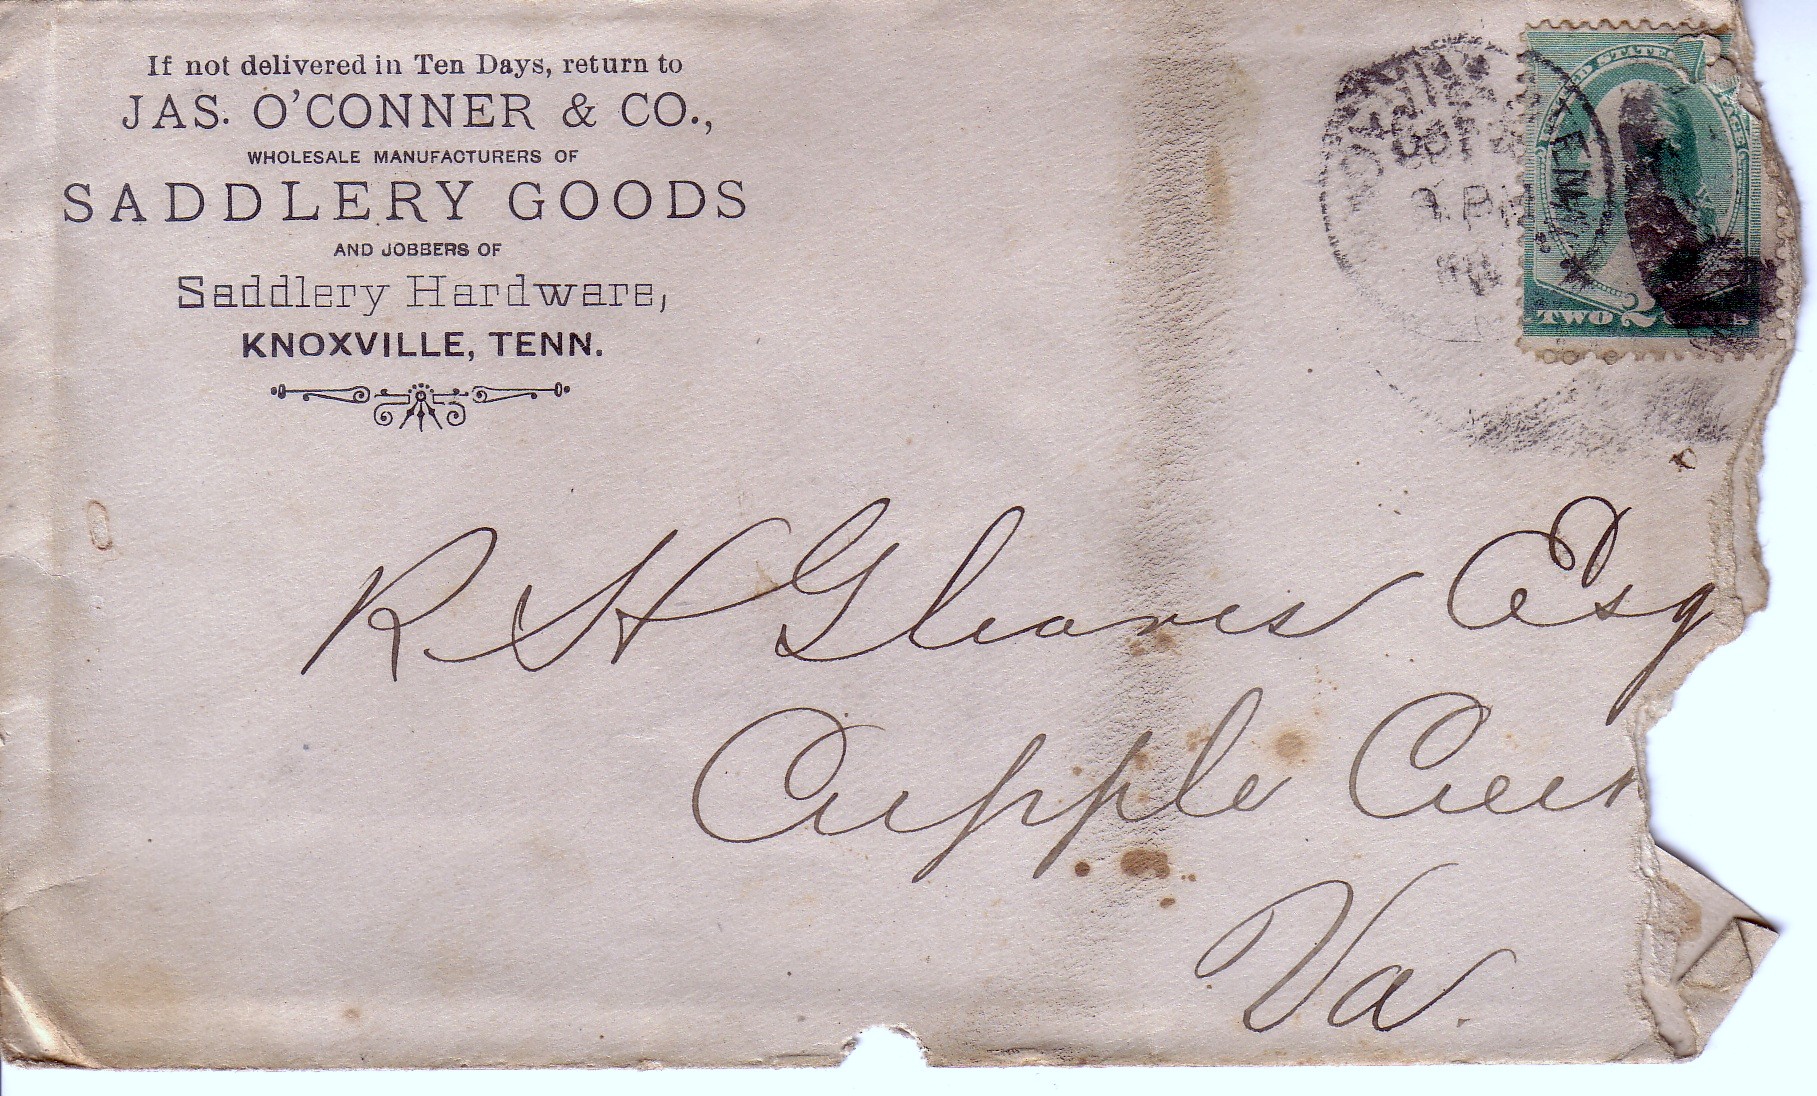 If not delivered in Ten Days, return to
JAS. O'CONNER & CO.,
WHOLESALE MANUFACTURERS OF
SADDLERY GOODS
AND JOBBERS OF
Saddlery Hardware,
KNOXVILLE, TENN.
OCT
PM
TWO 2 CENTS
R H Gleaves Esq
Apple Creek
Va.